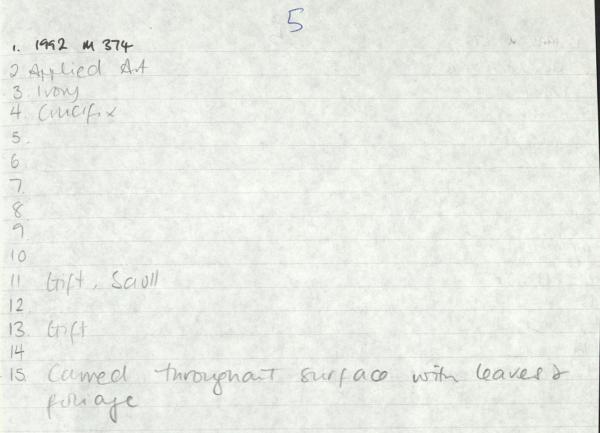 5
1. 1992 M 374
2 Applied Art
3 Ivory
4. Crucifix
5.
6
7.
8
9
10
11 Gift, Scull
12
13. Gift
14
15 Carved throughout surface with leaves &
foliage